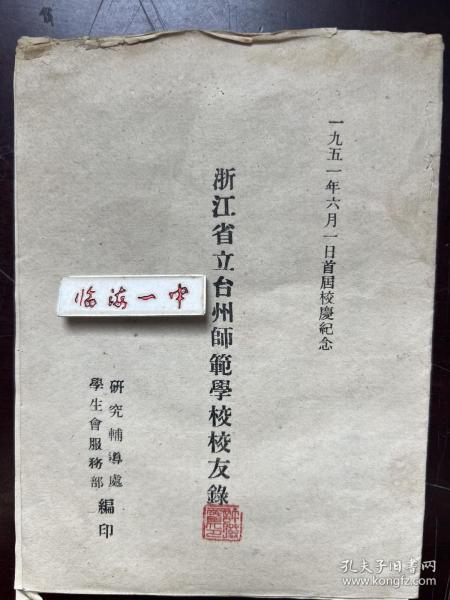 一九五一年六月一日首屆校慶紀念
浙江省立台州師範學校校友錄
研究輔導處
學生會服務部
編印
临海一中
孔夫子旧书网
www.kongfz.com